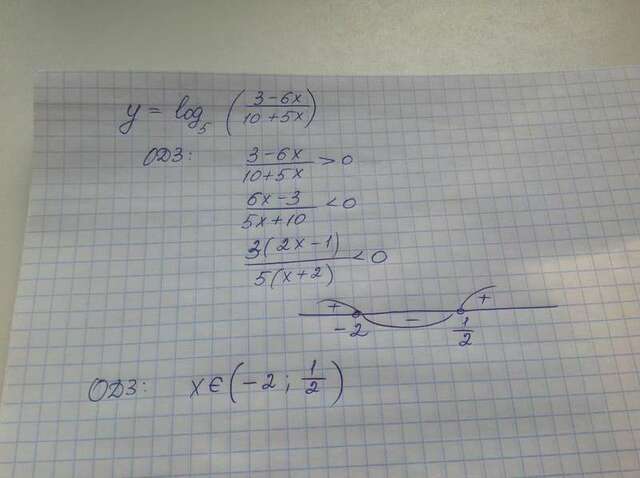 y = log₅ ( (3-6x)/(10+5x) )
ОДЗ: (3-6x)/(10+5x) > 0
(6x-3)/(5x+10) < 0
3(2x-1)/5(x+2) < 0
+ - +
-2 1/2
ОДЗ: x∈(-2; 1/2)